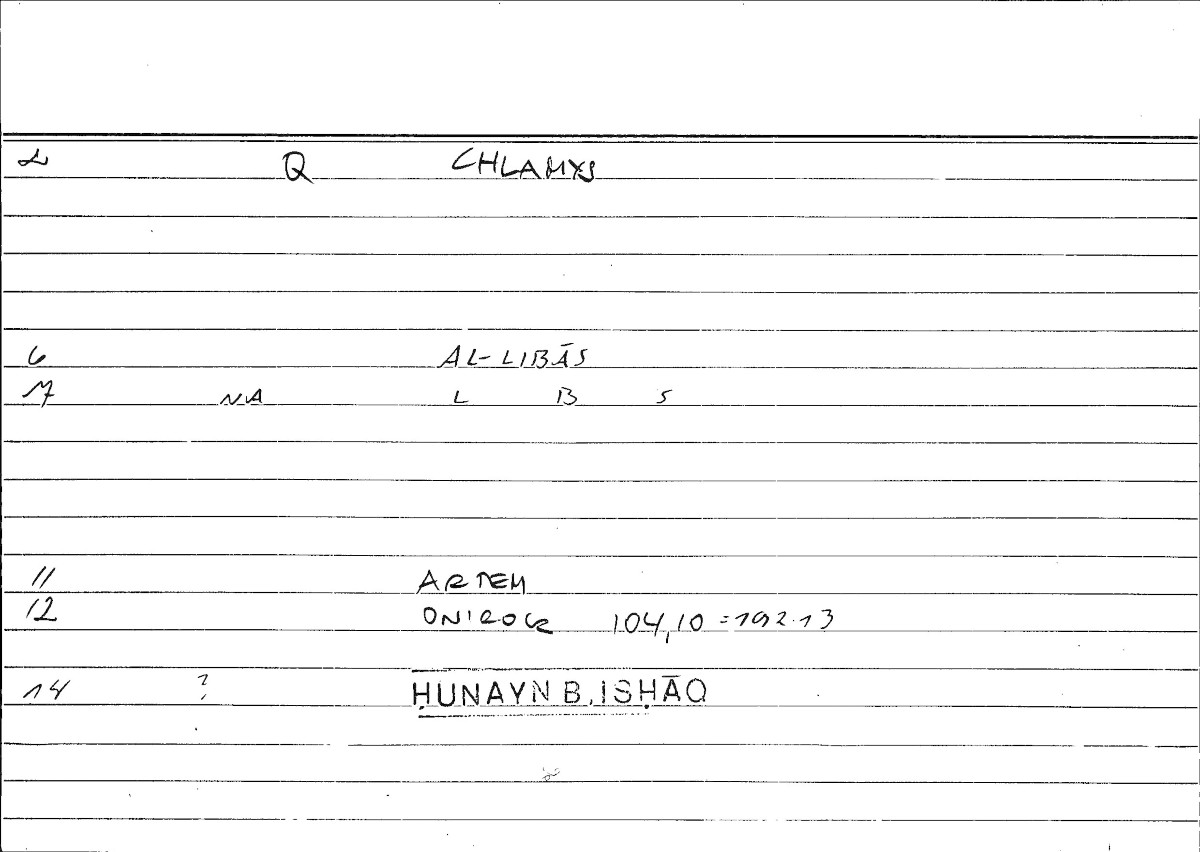 2 Q CHLAMYS
6 AL-LIBĀS
7 NA L B S
11 ARTEM
12 ONIROCR 104,10 = 192.13
14 ? ḤUNAYN B. ISḤĀQ